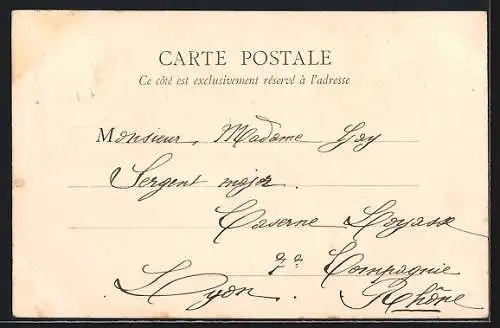 CARTE POSTALE
Ce côté est exclusivement réservé à l'adresse
Monsieur, Madame Gay
Sergent major.
Caserne Loyasse
Compagnie
Lyon. Rhône